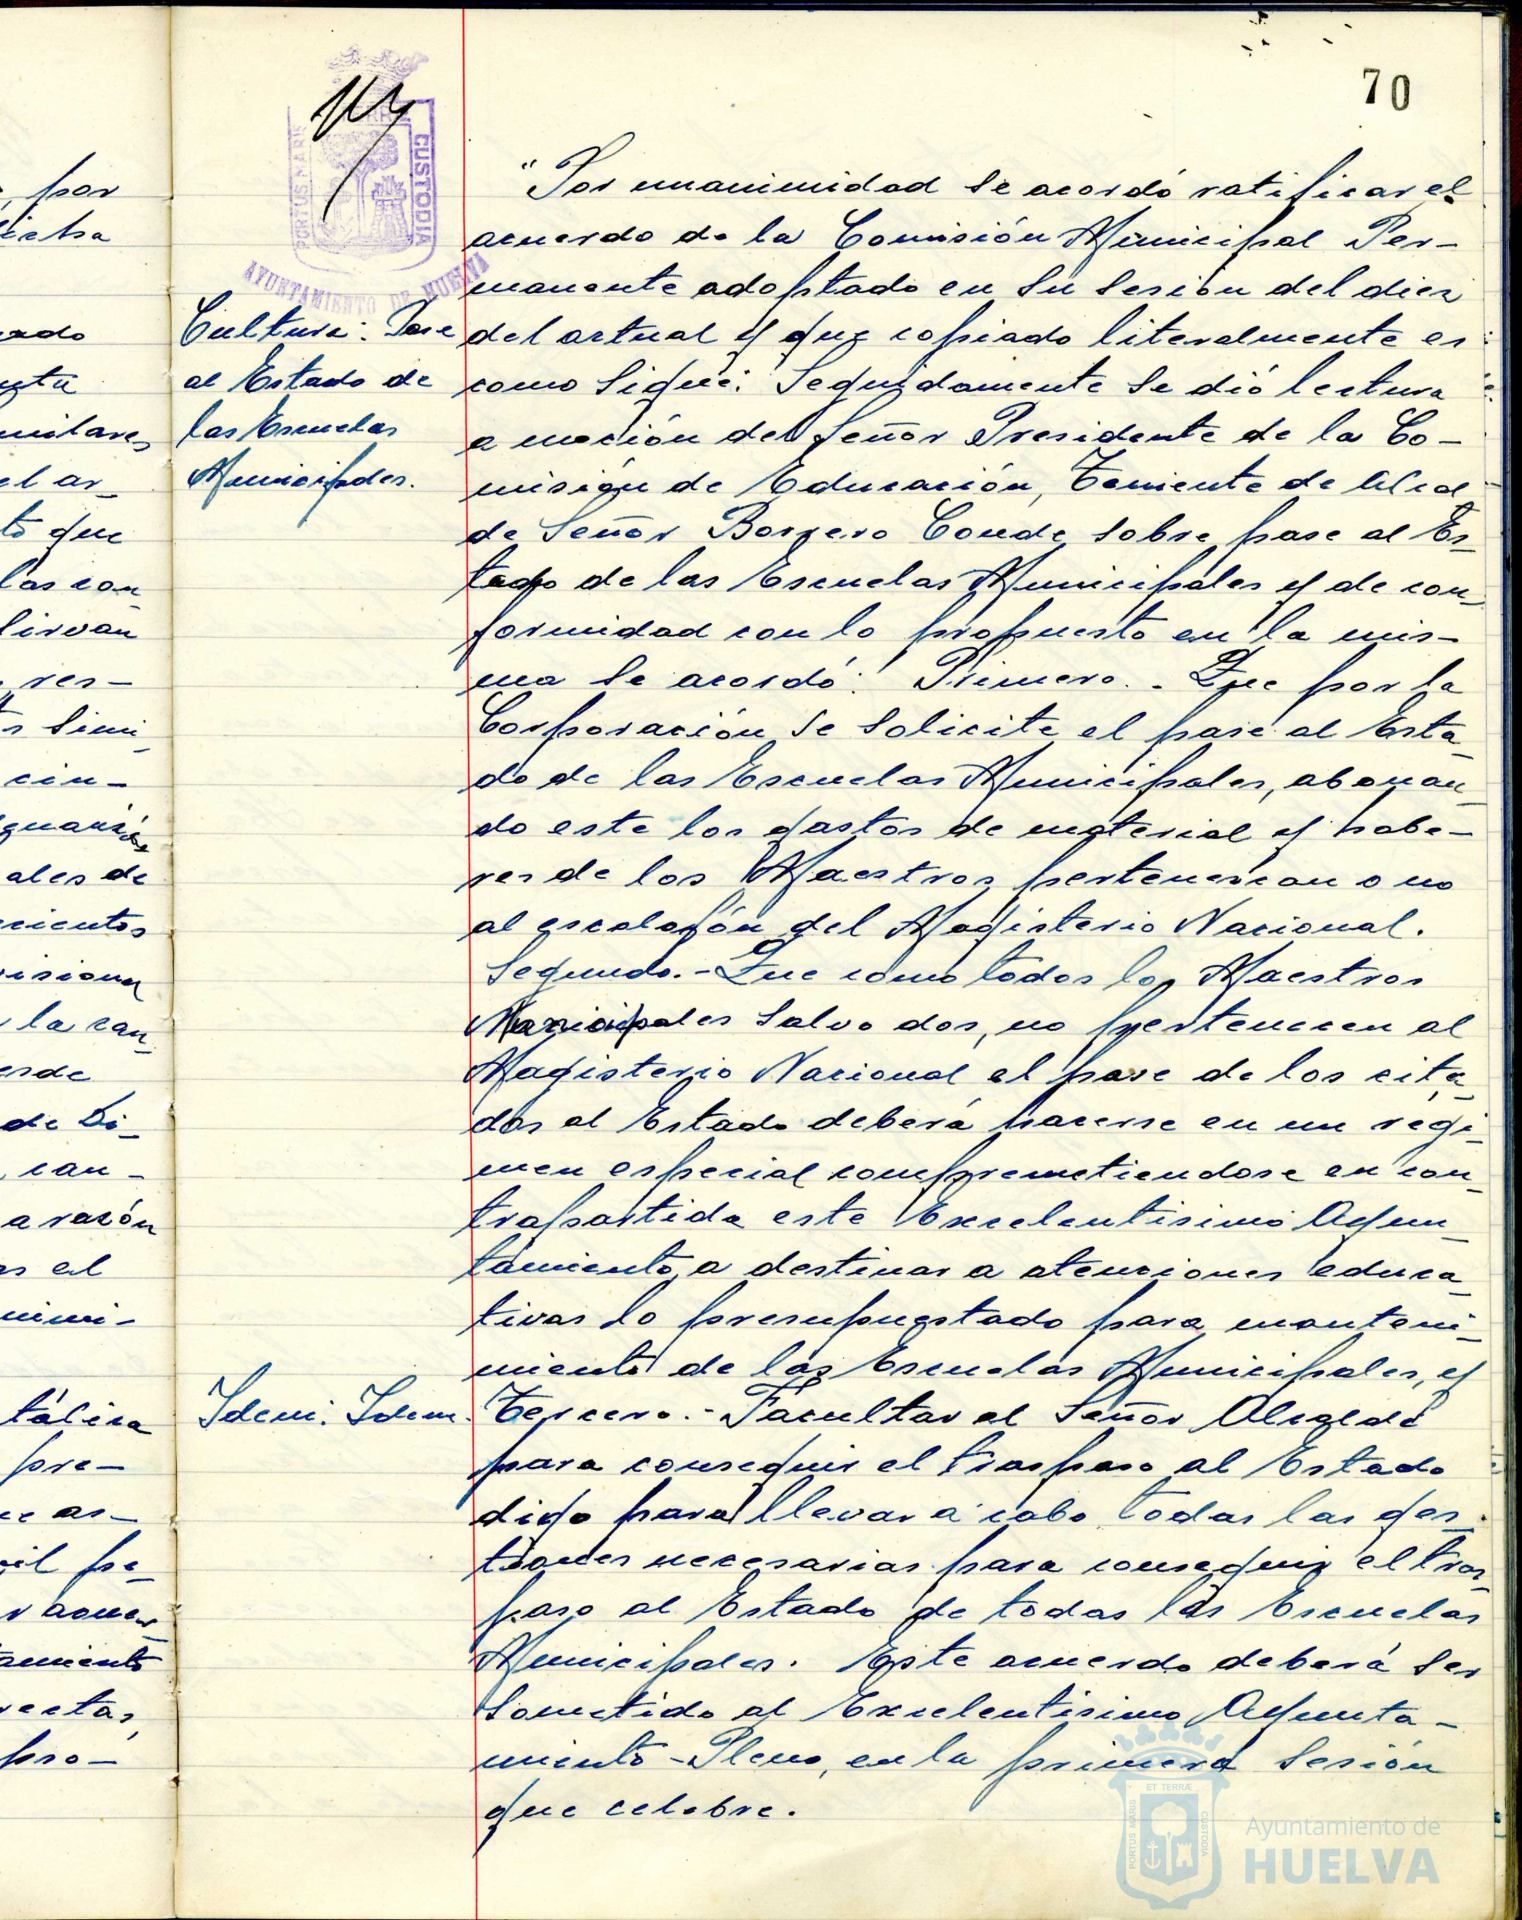 70
PORTUS MARIS
CUSTODIA
AYUNTAMIENTO DE HUELVA
"Por unanimidad se acordó ratificar el
acuerdo de la Comisión Municipal Per-
manente adoptado en su sesión del diez
del actual y que copiado literalmente es
como sigue: Seguidamente se dió lectura
a moción del Señor Presidente de la Co-
misión de Educación, Teniente de Alcal
de Señor Borrero Conde sobre pase al Es-
tado de las Escuelas Municipales y de con-
formidad con lo propuesto en la mis-
ma se acordó: Primero.- Que por la
Corporación se solicite el pase al Esta-
do de las Escuelas Municipales, abonan-
do este los gastos de material y habe-
res de los Maestros pertenezcan o no
al escalafón del Magisterio Nacional.
Segundo.- Que como todos los Maestros
Municipales salvo dos, no pertenecen al
Magisterio Nacional el pase de los cita-
dos al Estado deberá hacerse en un regi-
men especial comprometiendose en con-
trapartida este Excelentisimo Ayun-
tamiento, a destinar a atenciones educa-
tivas lo presupuestado para manteni-
miento de las Escuelas Municipales, y
Tercero.- Facultar al Señor Alcalde
para conseguir el traspaso al Estado
digo para llevar a cabo todas las ges-
tiones necesarias para conseguir el tras-
paso al Estado de todas las Escuelas
Municipales. Este acuerdo deberá ser
sometido al Excelentisimo Ayunta-
miento-Pleno, en la primera sesión
que celebre.
Cultura: Pase
al Estado de
las Escuelas
Municipales.
Idem: Idem.
por
ta
el ar-
to que
las con-
sirvan
res-
simi-
cin-
ales de
cientos
la can-
de Di-
can-
a razón
as el
pre-
as-
amiento
pro-
ET TERRÆ
PORTUS MARIS
CUSTODIA
Ayuntamiento de
HUELVA